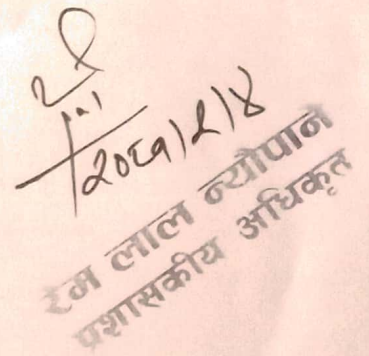 २०८१।२।४
रेम लाल न्यौपाने
प्रशासकीय अधिकृत